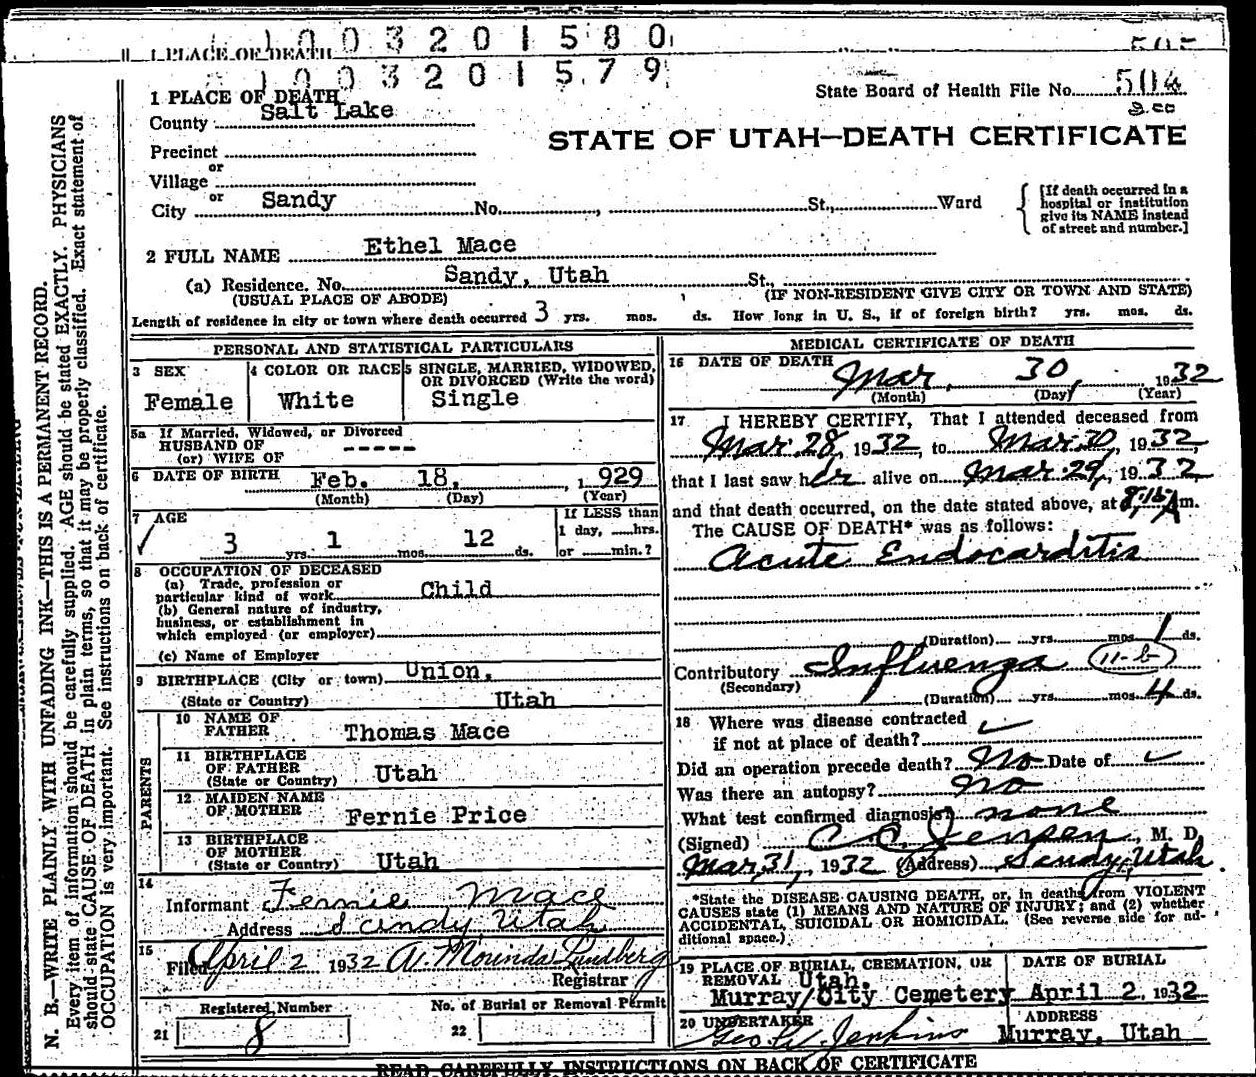 1003201580
1 PLACE OF DEATH
505
1003201579
1 PLACE OF DEATH
State Board of Health File No. 504
County Salt Lake
STATE OF UTAH—DEATH CERTIFICATE
Precinct
or
Village
or
City Sandy No. , St., Ward
[If death occurred in a
hospital or institution
give its NAME instead
of street and number.]
2 FULL NAME Ethel Mace
(a) Residence. No. Sandy, Utah St.,
(USUAL PLACE OF ABODE) (IF NON-RESIDENT GIVE CITY OR TOWN AND STATE)
Length of residence in city or town where death occurred 3 yrs. mos. ds. How long in U. S., if of foreign birth? yrs. mos. ds.
PERSONAL AND STATISTICAL PARTICULARS
3 SEX
Female
4 COLOR OR RACE
White
5 SINGLE, MARRIED, WIDOWED,
OR DIVORCED (Write the word)
Single
5a If Married, Widowed, or Divorced
HUSBAND OF
(or) WIFE OF -----
6 DATE OF BIRTH Feb. 18, 1929
(Month) (Day) (Year)
7 AGE
3 yrs. 1 mos. 12 ds.
If LESS than
1 day, hrs.
or min.?
8 OCCUPATION OF DECEASED
(a) Trade, profession or
particular kind of work Child
(b) General nature of industry,
business, or establishment in
which employed (or employer)
(c) Name of Employer
9 BIRTHPLACE (City or town) Union,
(State or Country) Utah
PARENTS
10 NAME OF
FATHER Thomas Mace
11 BIRTHPLACE
OF FATHER
(State or Country) Utah
12 MAIDEN NAME
OF MOTHER Fernie Price
13 BIRTHPLACE
OF MOTHER
(State or Country) Utah
14
Informant Fernie Mace
Address Sandy, Utah
15
Filed April 2 1932 A. Lundberg
Registrar
Registered Number
21 8
No. of Burial or Removal Permit
22
MEDICAL CERTIFICATE OF DEATH
16 DATE OF DEATH Mar. 30, 1932
(Month) (Day) (Year)
17 I HEREBY CERTIFY, That I attended deceased from
Mar. 28, 1932, to Mar. 30, 1932,
that I last saw her alive on Mar. 29, 1932
and that death occurred, on the date stated above, at 8:15 A m.
The CAUSE OF DEATH* was as follows:
Acute Endocarditis
(Duration) yrs. mos. 1 ds.
Contributory Influenza 11-b
(Secondary)
(Duration) yrs. mos. 4 ds.
18 Where was disease contracted
if not at place of death?
Did an operation precede death? No Date of
Was there an autopsy? No
What test confirmed diagnosis? none
(Signed) C. C. Jensen, M. D.
Mar. 31, 1932 (Address) Sandy, Utah
*State the DISEASE CAUSING DEATH, or, in deaths from VIOLENT
CAUSES state (1) MEANS AND NATURE OF INJURY; and (2) whether
ACCIDENTAL, SUICIDAL OR HOMICIDAL. (See reverse side for ad-
ditional space.)
19 PLACE OF BURIAL, CREMATION, OR
REMOVAL Utah.
Murray City Cemetery
DATE OF BURIAL
April 2, 1932
20 UNDERTAKER
Geo. W. Jenkins
ADDRESS
Murray, Utah
READ CAREFULLY INSTRUCTIONS ON BACK OF CERTIFICATE
N. B.—WRITE PLAINLY WITH UNFADING INK—THIS IS A PERMANENT RECORD.
Every item of information should be carefully supplied. AGE should be stated EXACTLY. PHYSICIANS
should state CAUSE OF DEATH in plain terms, so that it may be properly classified. Exact statement of
OCCUPATION is very important. See instructions on back of certificate.